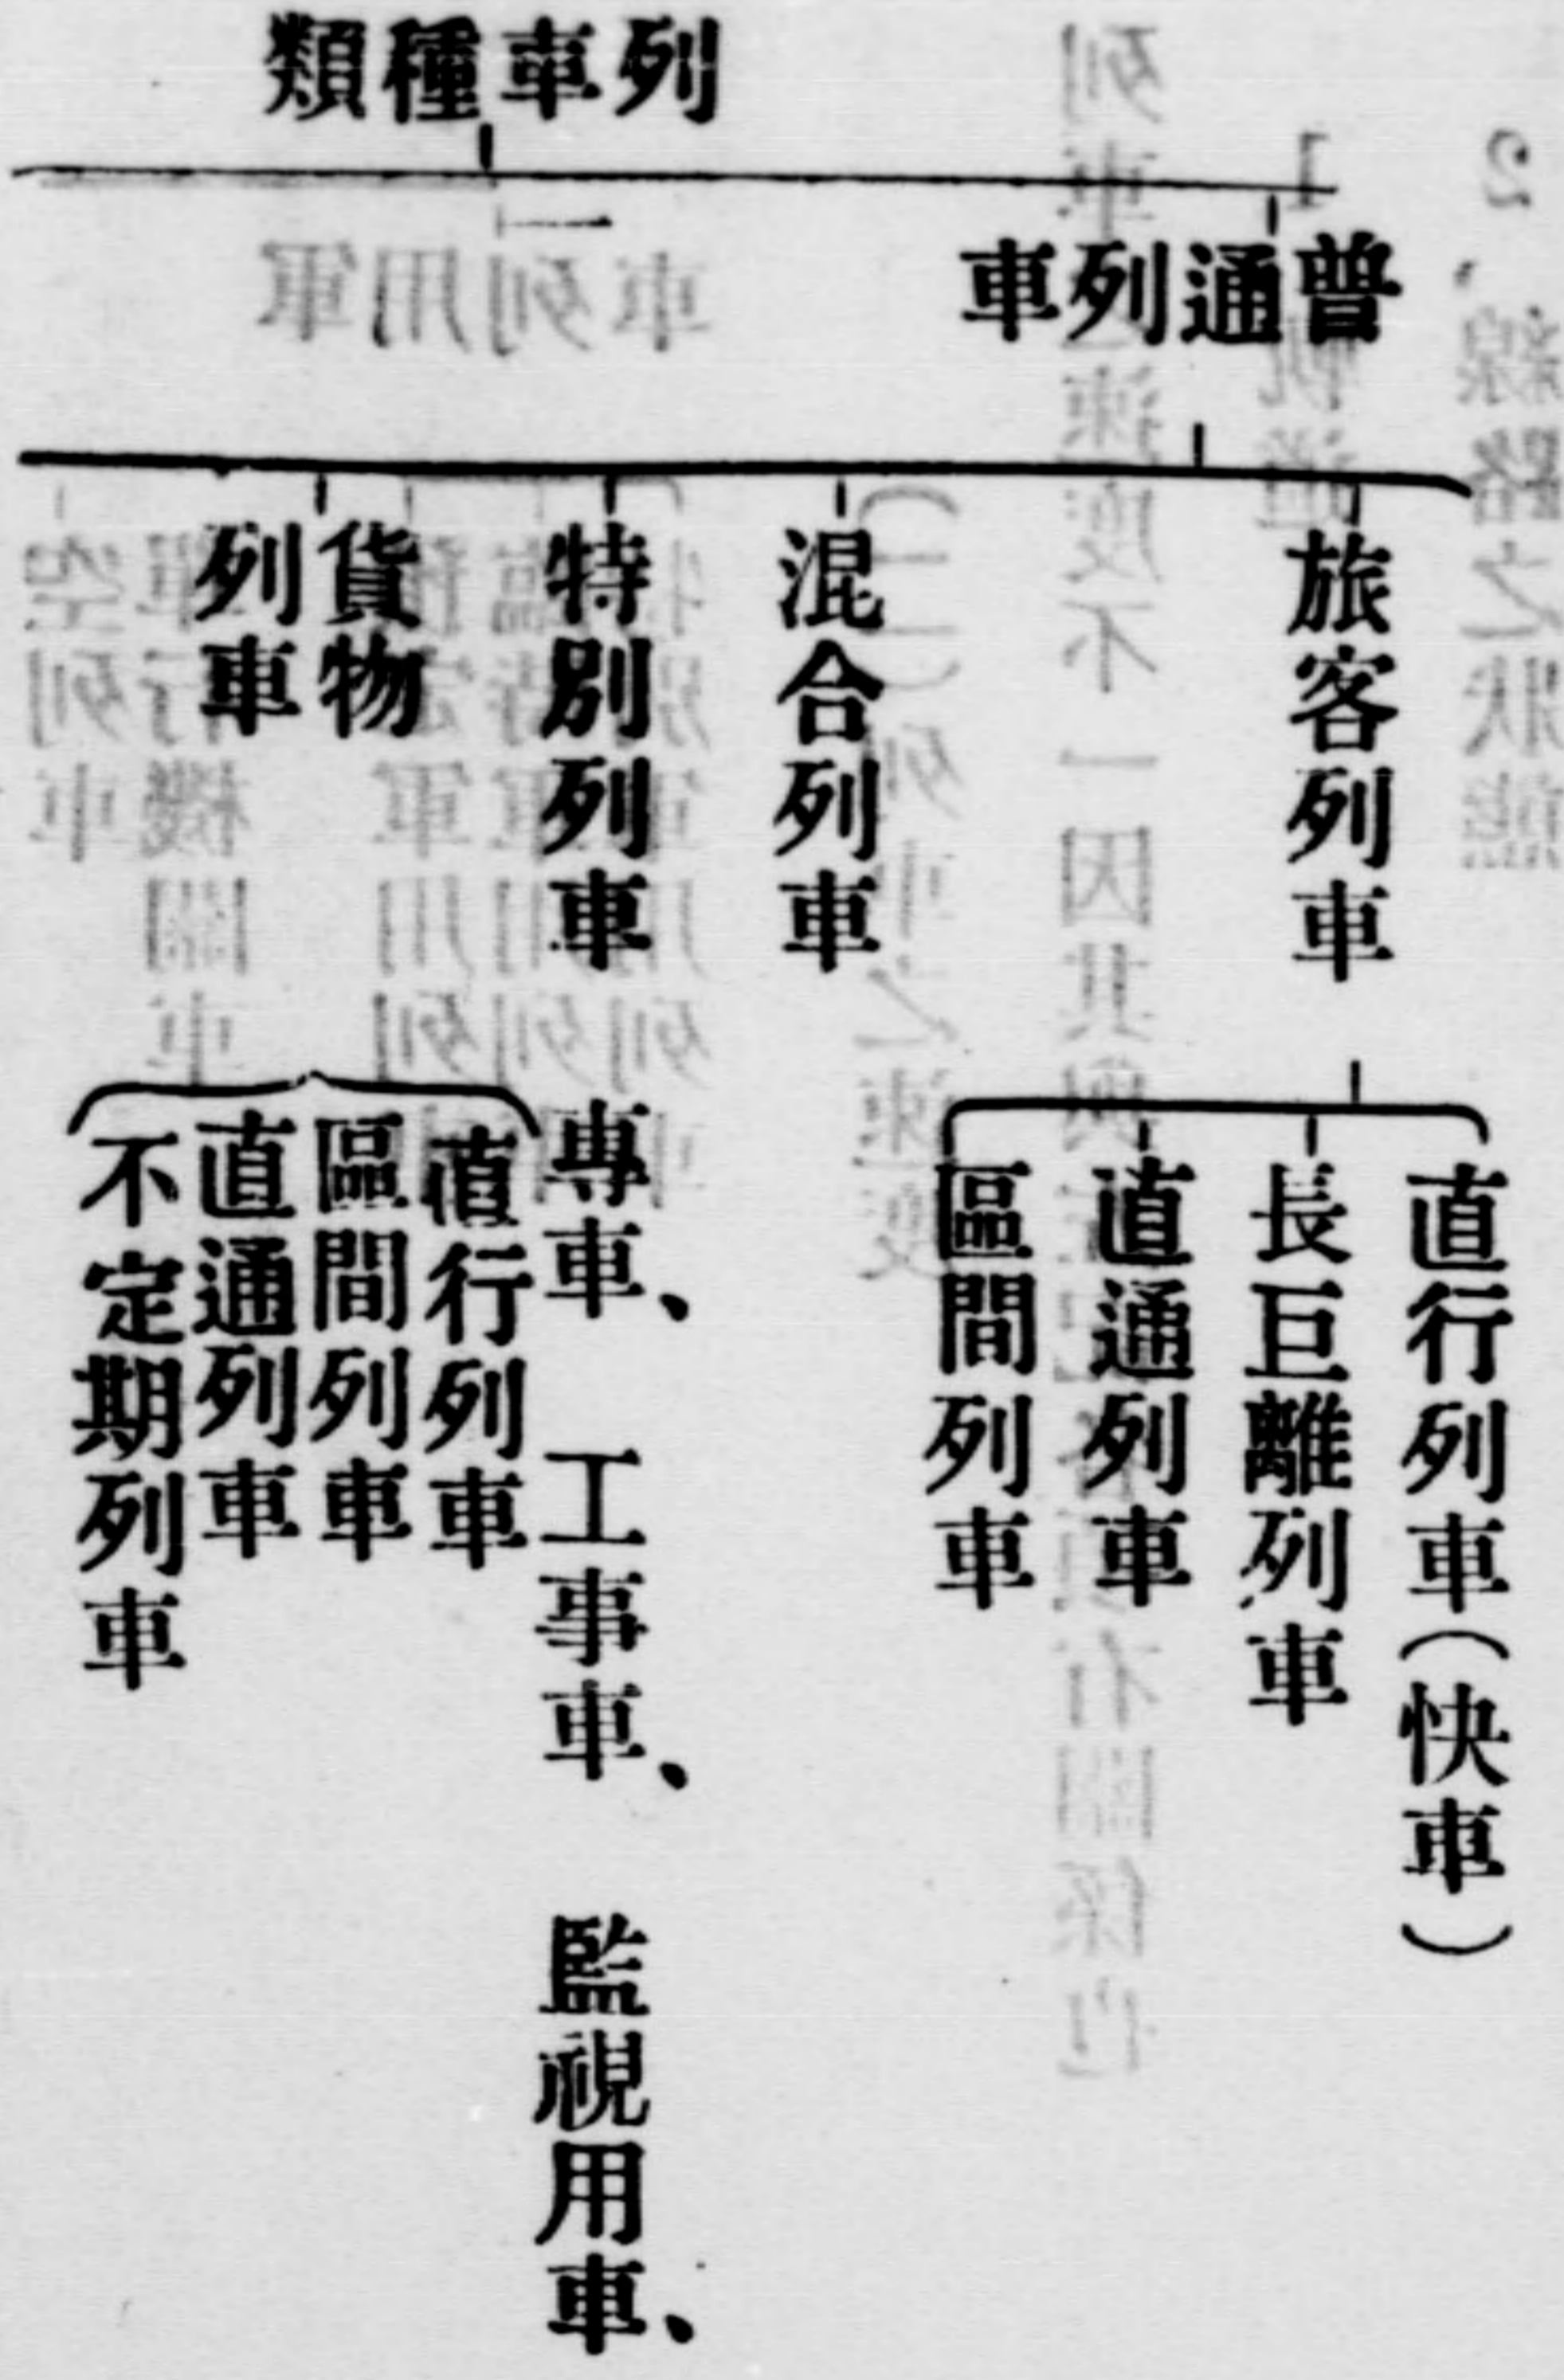 列車種類
普通列車
旅客列車
直行列車(快車)
長巨離列車
直通列車
區間列車
混合列車
特別列車
專車、工事車、監視用車、
貨物
列車
直行列車
區間列車
直通列車
不定期列車